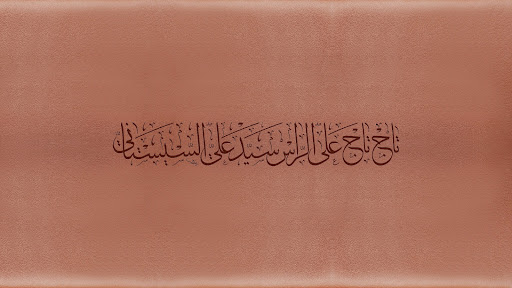 تاج تاج على الراس سيد علي السيستاني